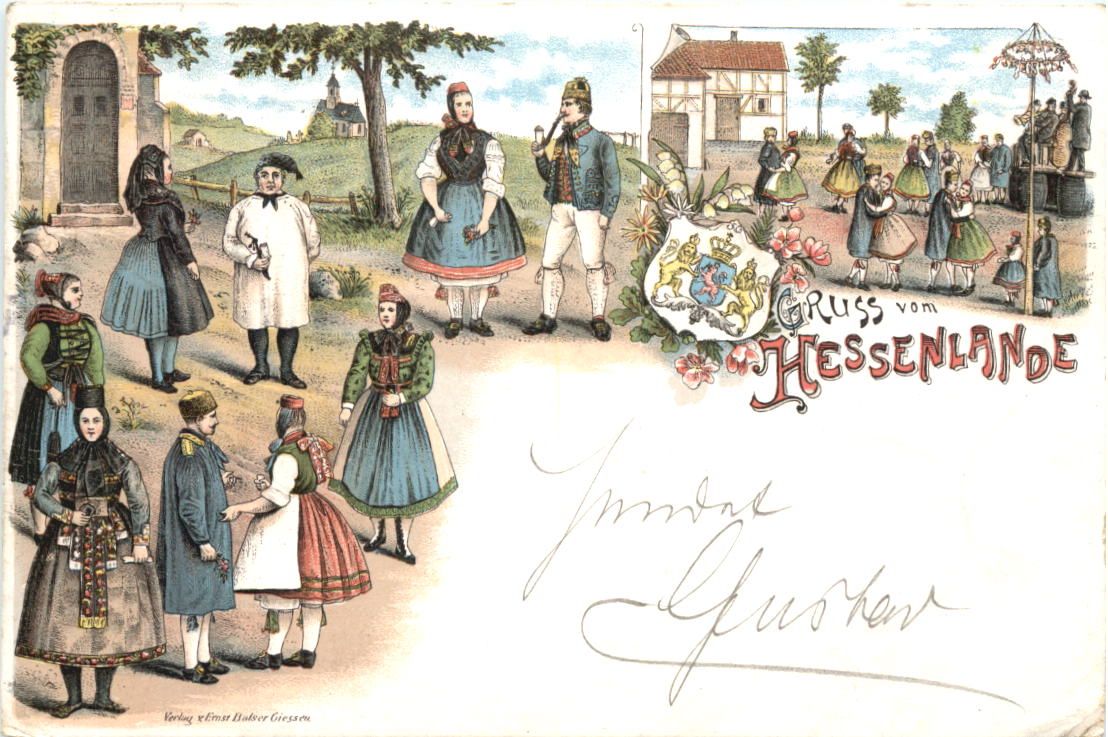 Gruss vom
Hessenlande
Gustav
Verlag v Ernst Balser Giessen